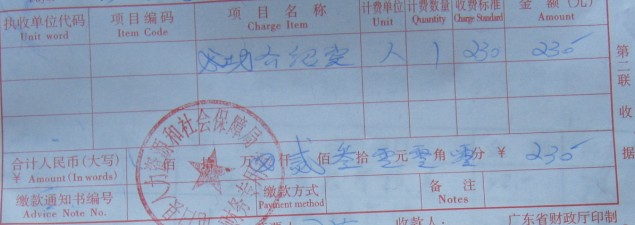 执收单位代码 项目编码 项目名称 计费单位 计费数量 收费标准 金额（元）
Unit word Item Code Charge Item Unit Quantity Charge Standard Amount
人 1 230 230
第二联 收据
合计人民币（大写） 佰 拾 万 仟 贰 佰 叁 拾 零 元 零 角 零 分 ￥ 230
￥ Amount (In words)
缴款通知书编号 缴款方式 备注
Advice Note No. Payment method Notes
人力资源和社会保障局
收款人 广东省财政厅印制